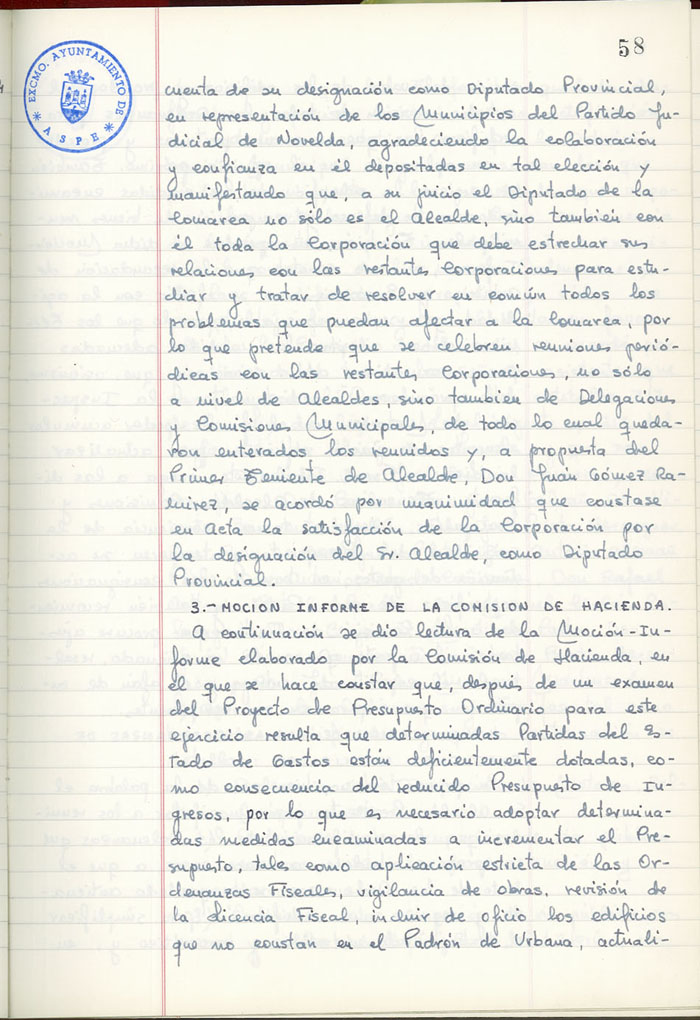 58
EXCMO. AYUNTAMIENTO DE
* ASPE *
cuenta de su designación como Diputado Provincial,
en representación de los Municipios del Partido Ju-
dicial de Novelda, agradeciendo la colaboración
y confianza en él depositadas en tal elección y
manifestando que, a su juicio el Diputado de la
Comarca no sólo es el Alcalde, sino tambien con
él toda la Corporación que debe estrechar sus
relaciones con las restantes Corporaciones para estu-
diar y tratar de resolver en común todos los
problemas que puedan afectar a la Comarca, por
lo que pretende que se celebren reuniones perió-
dicas con las restantes Corporaciones, no sólo
a nivel de Alcaldes, sino tambien de Delegaciones
y Comisiones Municipales, de todo lo cual queda-
ron enterados los reunidos y, a propuesta del
Primer Teniente de Alcalde, Don Juán Gómez Ra-
mirez, se acordó por unanimidad que constase
en Acta la satisfacción de la Corporación por
la designación del Sr. Alcalde, como Diputado
Provincial.
3.- MOCION INFORME DE LA COMISION DE HACIENDA.
A continuación se dio lectura de la Moción-In-
forme elaborado por la Comisión de Hacienda, en
el que se hace constar que, después de un examen
del Proyecto de Presupuesto Ordinario para este
ejercicio resulta que determinadas Partidas del Es-
tado de Gastos están deficientemente dotadas, co-
mo consecuencia del reducido Presupuesto de In-
gresos, por lo que es necesario adoptar determina-
das medidas encaminadas a incrementar el Pre-
supuesto, tales como aplicación estricta de las Or-
denanzas Fiscales, vigilancia de obras, revisión de
la Licencia Fiscal, incluir de oficio los edificios
que no constan en el Padrón de Urbana, actuali-